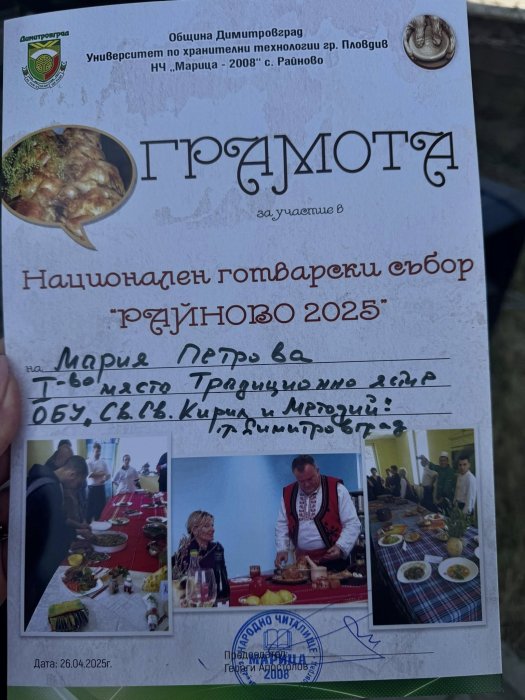 Димитровград
Община Димитровград
Университет по хранителни технологии гр. Пловдив
НЧ „Марица - 2008" с. Райново
ГРАМОТА
за участие в
Национален готварски събор
"РАЙНОВО 2025"
на Мария Петрова
I-во място Традиционно ястие
ОБУ „Св.Св. Кирил и Методий"
гр. Димитровград
НАРОДНО ЧИТАЛИЩЕ
МАРИЦА
2008
Председател:
Георги Апостолов
Дата: 26.04.2025г.